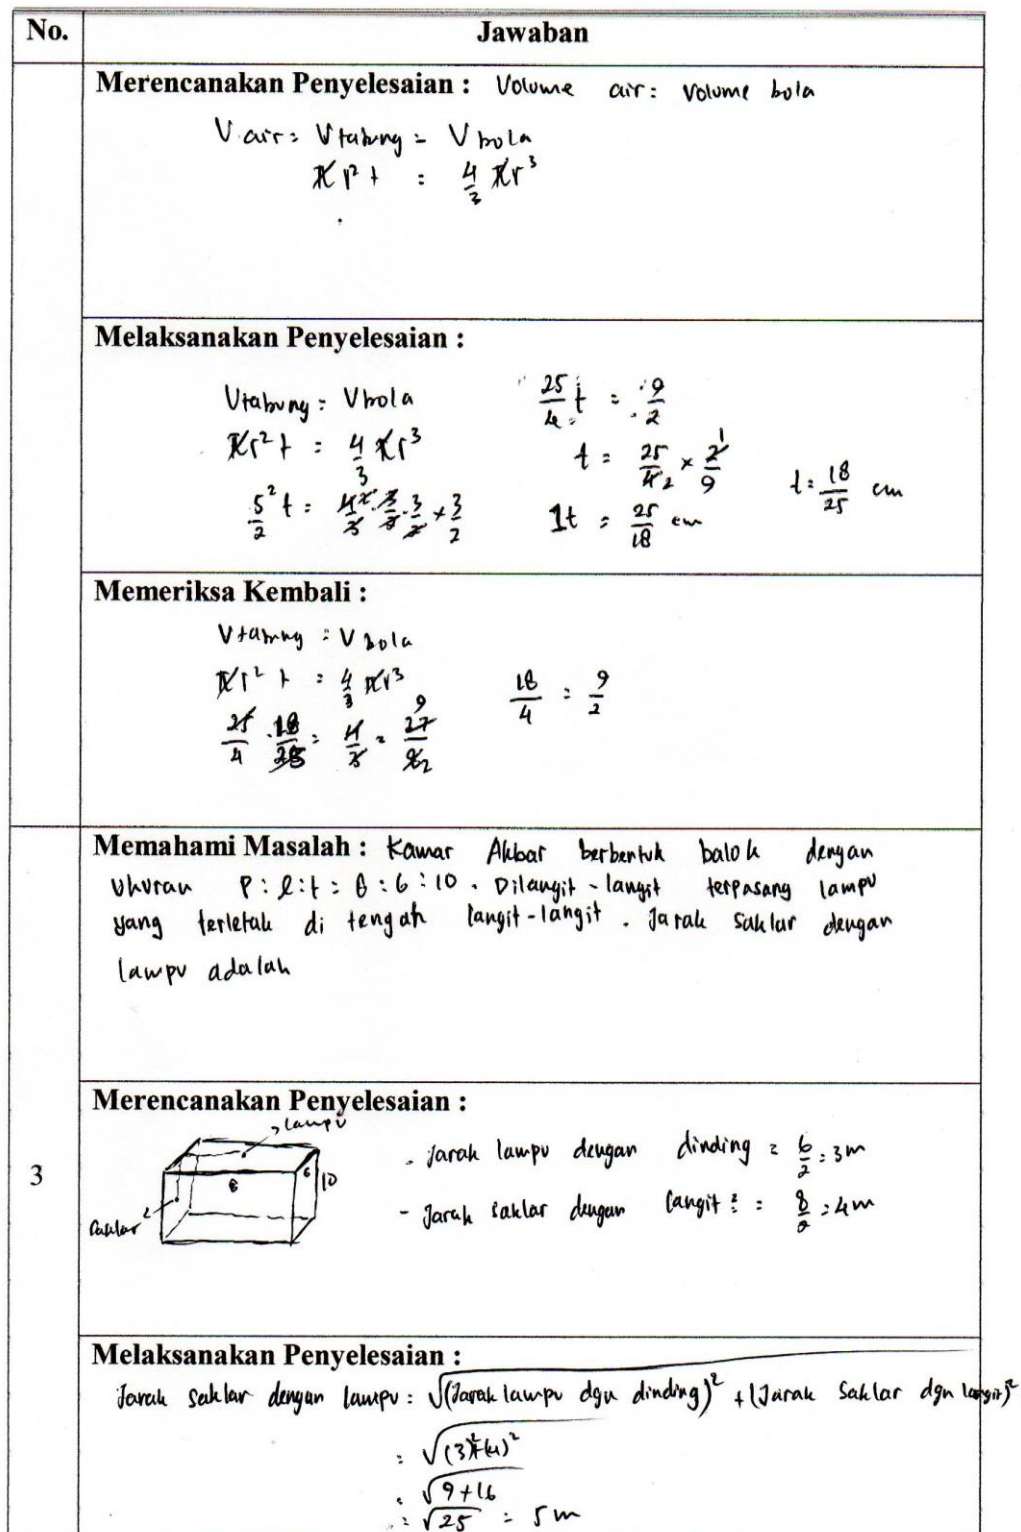 No. Jawaban
Merencanakan Penyelesaian : Volume air = Volume bola
V air = V tabung = V bola
πr²t = 4/3 πr³
Melaksanakan Penyelesaian :
Vtabung = Vbola
πr²t = 4/3 πr³
5/2² t = 4/3 · 3/2 · 3/2 × 3/2
25/4 t = 9/2
t = 25/4 2 × 2/9 1
1t = 25/18 cm
t = 18/25 cm
Memeriksa Kembali :
Vtabung = Vbola
πr² t = 4/3 πr³
25/4 · 18/25 = 4/3 · 27/8 9 2
18/4 = 9/2
3
Memahami Masalah : Kamar Akbar berbentuk balok dengan
ukuran P : l : t = 8 : 6 : 10 . Dilangit - langit terpasang lampu
yang terletak di tengah langit-langit . Jarak saklar dengan
lampu adalah
Merencanakan Penyelesaian :
lampu
8 6 10
saklar
- Jarak lampu dengan dinding = 6/2 = 3m
- Jarak saklar dengan langit² = 8/2 = 4m
Melaksanakan Penyelesaian :
Jarak saklar dengan lampu = √(Jarak lampu dgn dinding)² + (Jarak saklar dgn langit)²
= √(3)²+(4)²
= √9+16
= √25 = 5m